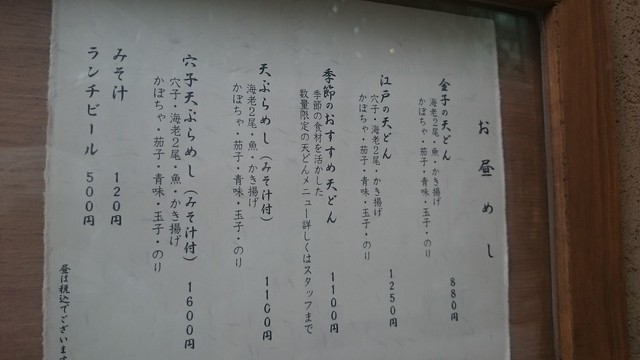 お昼めし
金子の天どん 880円
海老2尾・魚・かき揚げ
かぼちゃ・茄子・青味・玉子・のり
江戸の天どん 1250円
穴子・海老2尾・魚・かき揚げ
かぼちゃ・茄子・青味・玉子・のり
季節のおすすめ天どん 1100円
季節の食材を活かした
数量限定の天どんメニュー詳しくはスタッフまで
天ぷらめし(みそ汁付) 1100円
海老2尾・魚・かき揚げ
かぼちゃ・茄子・青味・玉子・のり
穴子天ぷらめし(みそ汁付) 1600円
穴子・海老2尾・魚・かき揚げ
かぼちゃ・茄子・青味・玉子・のり
みそ汁 120円
ランチビール 500円
昼は税込でございます